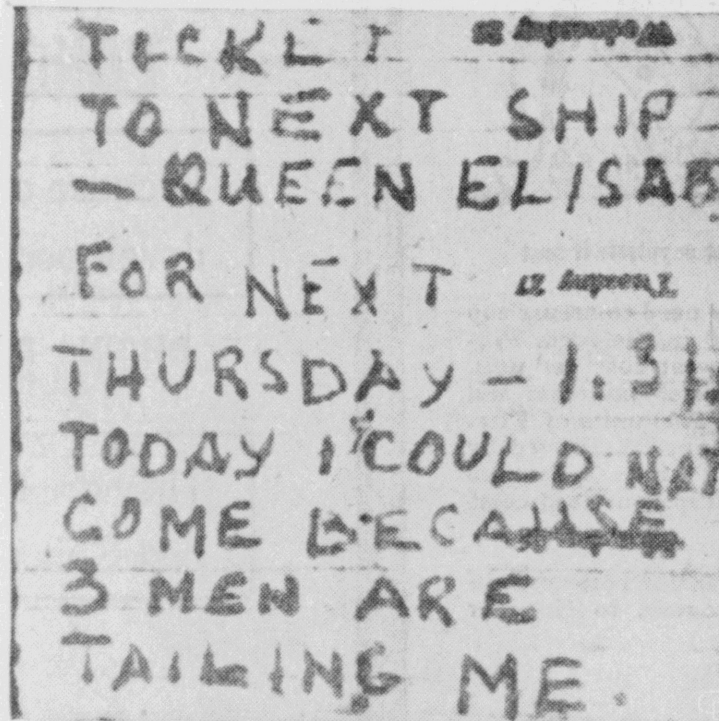 TICKET
TO NEXT SHIP
— QUEEN ELISAB
FOR NEXT
THURSDAY – 1.3
TODAY I COULD NAT
COME BECAUSE
3 MEN ARE
TAILING ME.